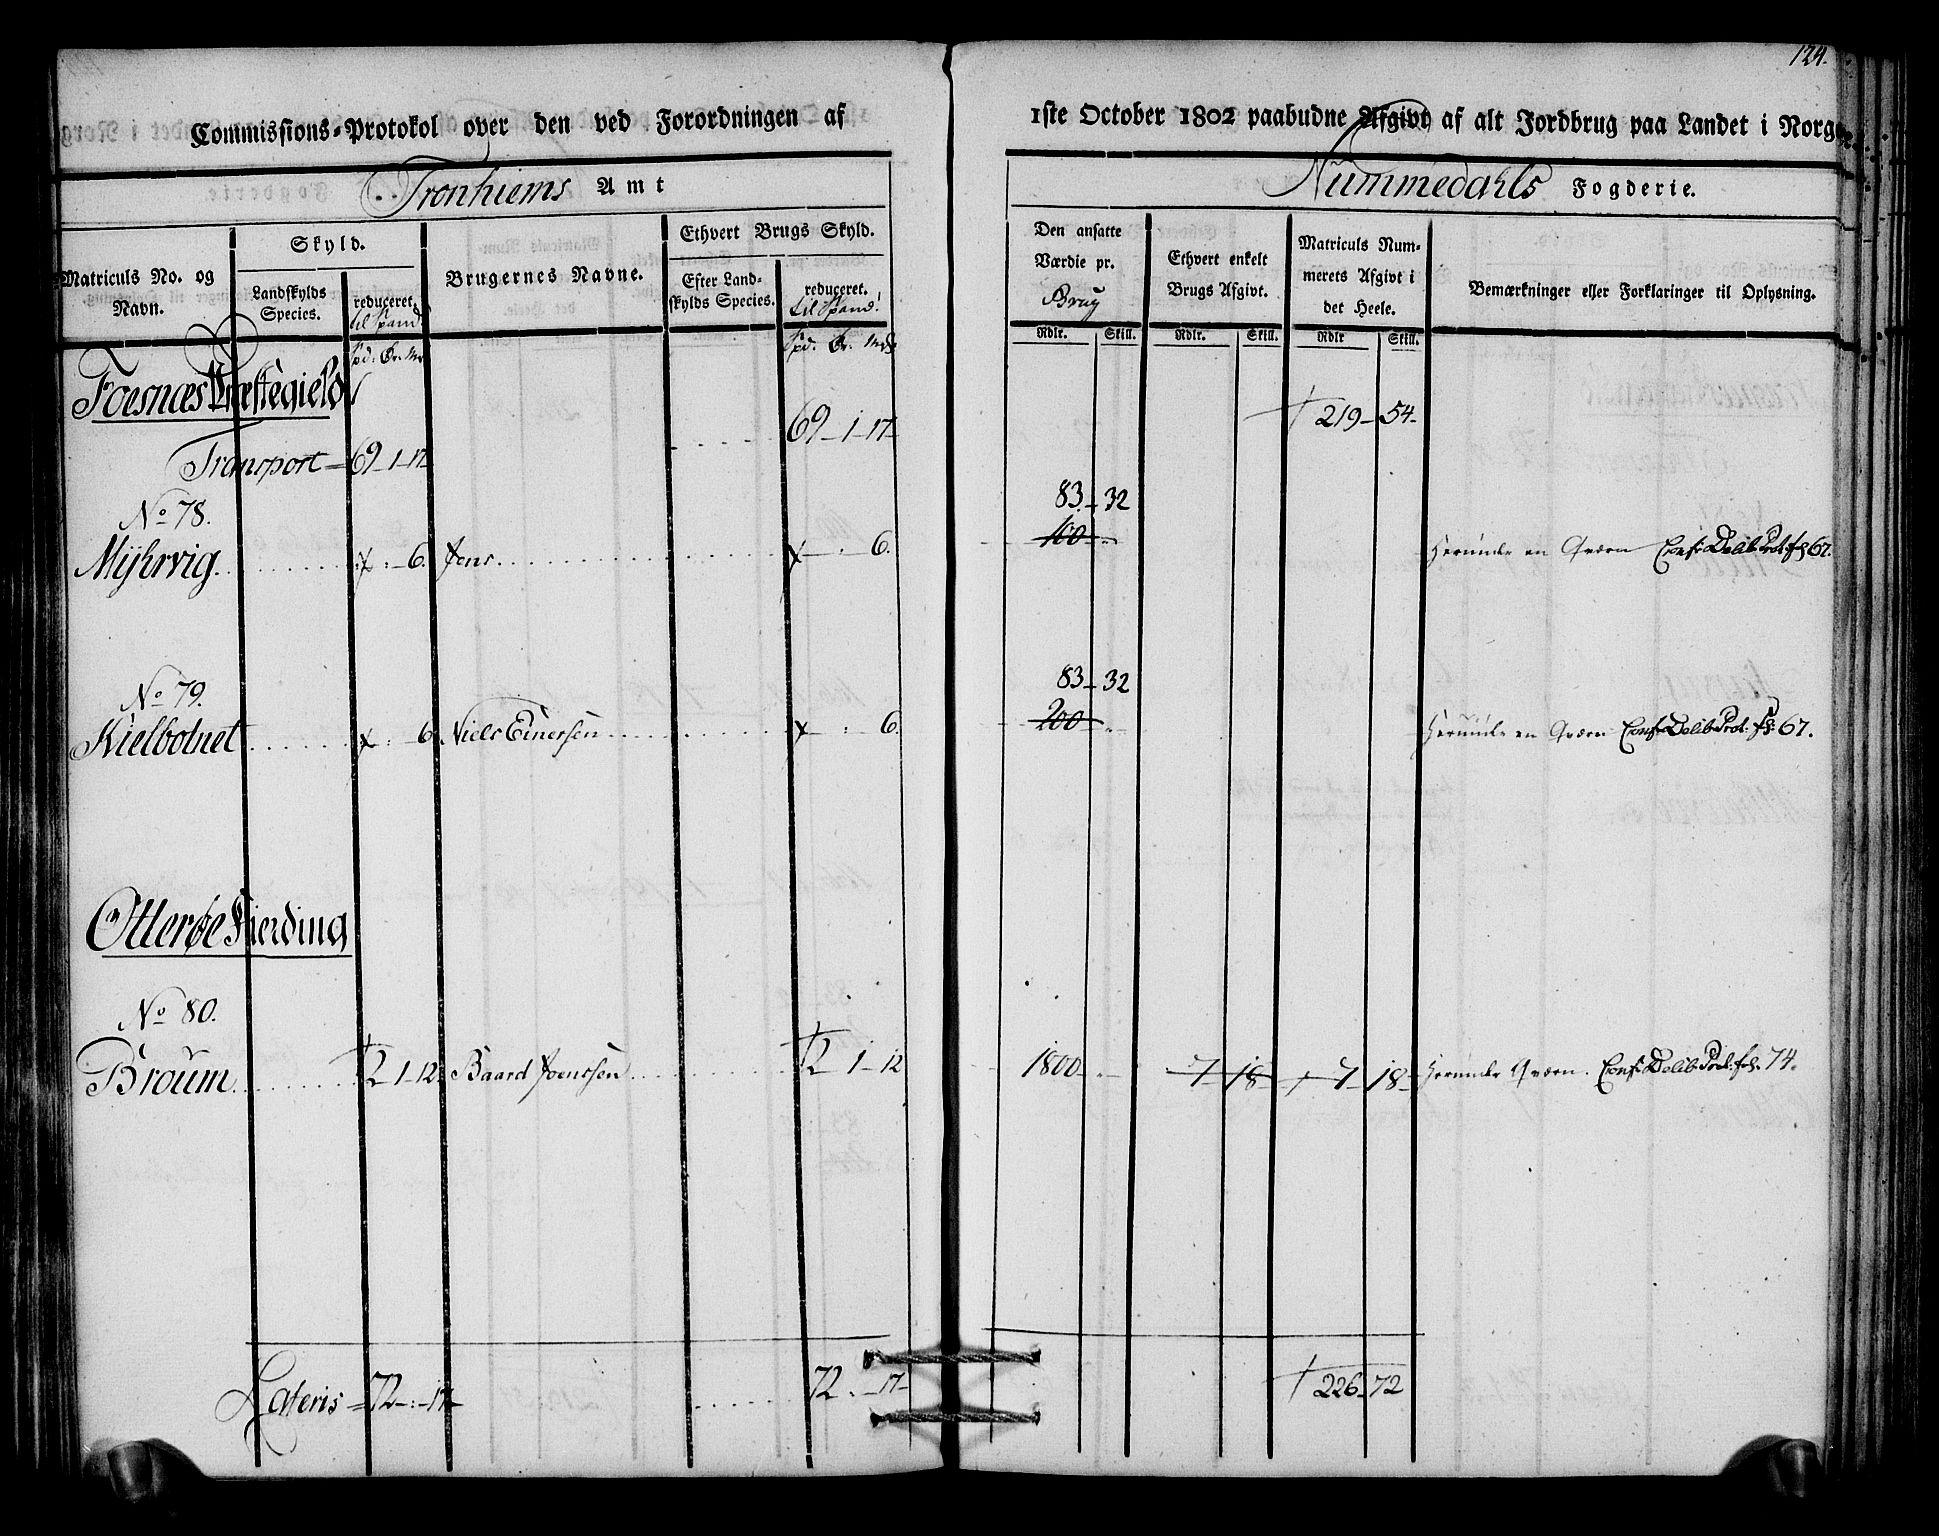 124.
Commissions-Protokol over den ved Forordningen af 1ste October 1802 paabudne Afgivt af alt Jordbrug paa Landet i Norge.
Tronhiems Amt
Nummedahls Fogderie.
Matriculs No. og Navn.
Skyld.
Landskylds Species.
reduceret til Spand.
Brugernes Navne.
Ethvert Brugs Skyld.
Efter Landskylds Species.
reduceret. til Spand.
Den ansatte Værdie pr. Brug
Ethvert enkelt Brugs Afgivt.
Matriculs Nummerets Afgivt i det Heele.
Bemærkninger eller Forklaringer til Oplysning.
Spd: Ør. Mk
Spd. Ør. Mk
Rdlr. Skill. Rdlr. Skill. Rdlr Skill.
Foesnæs Præstegield
Transport = 69 - 1 - 17 69 - 1 - 17 - 219 - 54 -
No 78. 83 - 32
Mÿhrvig 6. Jens 6. 100 Herunder en Qværn Conf: Delib: Prot: fol 67.
No 79. 83 - 32
Kielbotnet 6 Niels Einersen 6. 200 Herunder en Qværn Conf: Delib: Prot: fol: 67.
Otterøe Fierding
No 80.
Broum 2 1 12. Baard Joensen 2 1 - 12 1800 - 7 - 18 - 7 - 18 - Herunder Qværn. Conf: Delib: Prot: fol. 74.
Lateris = 72 - : - 17 - 72 . - 17 - 226 - 72